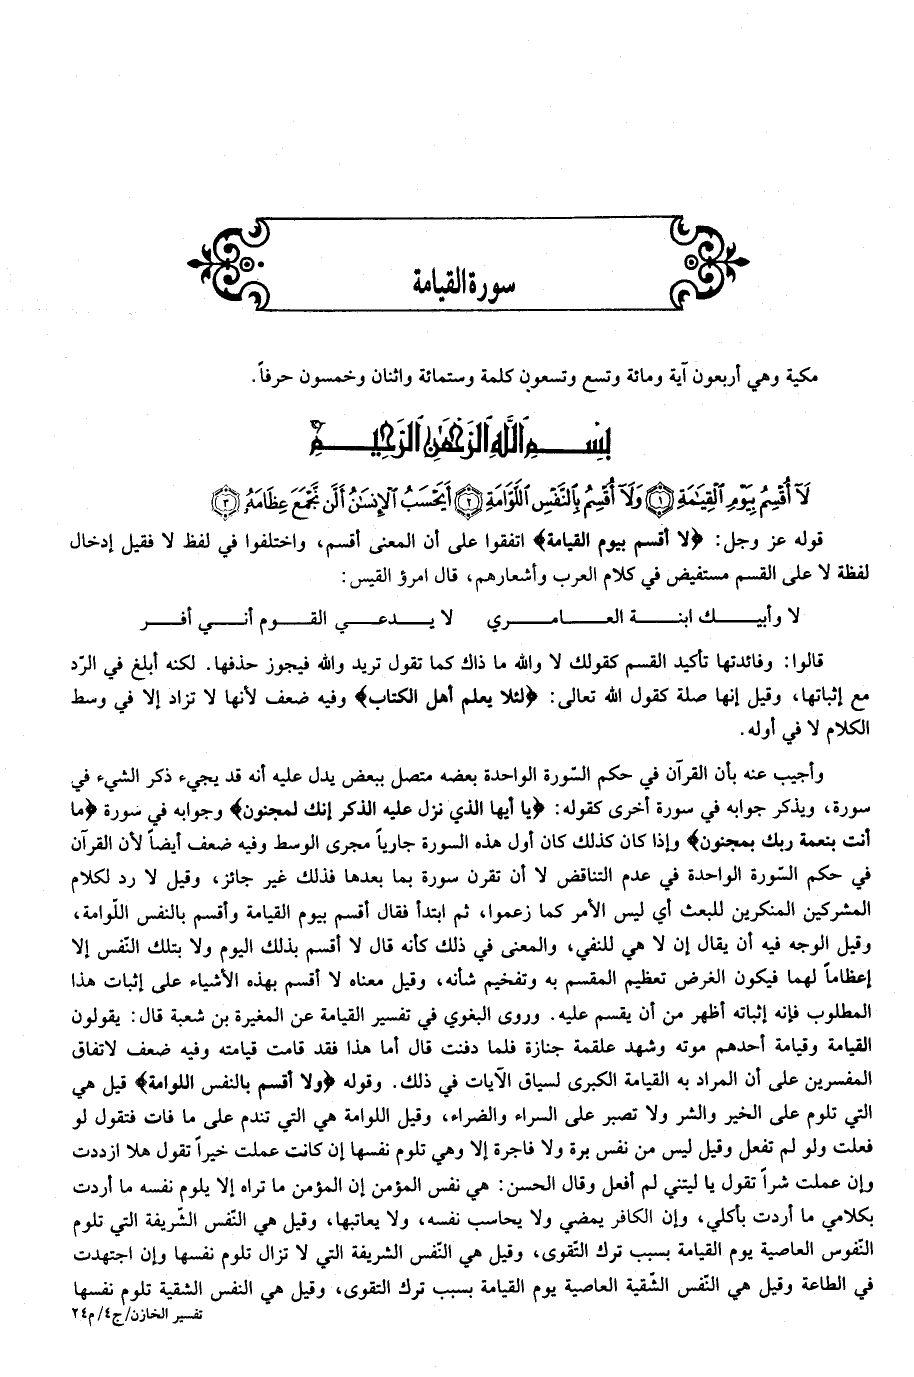 سورة القيامة
مكية وهي أربعون آية ومائة وتسع وتسعون كلمة وستمائة واثنان وخمسون حرفاً.
بِسْمِ ٱللَّهِ ٱلرَّحْمَٰنِ ٱلرَّحِيمِ
لَآ أُقْسِمُ بِيَوْمِ ٱلْقِيَٰمَةِ ﴿١﴾ وَلَآ أُقْسِمُ بِٱلنَّفْسِ ٱللَّوَّامَةِ ﴿٢﴾ أَيَحْسَبُ ٱلْإِنسَٰنُ أَلَّن نَّجْمَعَ عِظَامَهُ ﴿٣﴾
قوله عز وجل: ﴿لا أقسم بيوم القيامة﴾ اتفقوا على أن المعنى أقسم، واختلفوا في لفظ لا فقيل إدخال
لفظة لا على القسم مستفيض في كلام العرب وأشعارهم، قال امرؤ القيس:
لا وأبيك ابنة العامري لا يدعي القوم أني أفر
قالوا: وفائدتها تأكيد القسم كقولك لا والله ما ذاك كما تقول تريد والله فيجوز حذفها. لكنه أبلغ في الرّد
مع إثباتها، وقيل إنها صلة كقول الله تعالى: ﴿لئلا يعلم أهل الكتاب﴾ وفيه ضعف لأنها لا تزاد إلا في وسط
الكلام لا في أوله.
وأجيب عنه بأن القرآن في حكم السّورة الواحدة بعضه متصل ببعض يدل عليه أنه قد يجيء ذكر الشيء في
سورة، ويذكر جوابه في سورة أخرى كقوله: ﴿يا أيها الذي نزل عليه الذكر إنك لمجنون﴾ وجوابه في سورة ﴿ما
أنت بنعمة ربك بمجنون﴾ وإذا كان كذلك كان أول هذه السورة جارياً مجرى الوسط وفيه ضعف أيضاً لأن القرآن
في حكم السّورة الواحدة في عدم التناقض لا أن تقرن سورة بما بعدها فذلك غير جائز، وقيل لا رد لكلام
المشركين المنكرين للبعث أي ليس الأمر كما زعموا، ثم ابتدأ فقال أقسم بيوم القيامة وأقسم بالنفس اللّوامة،
وقيل الوجه فيه أن يقال إن لا هي للنفي، والمعنى في ذلك كأنه قال لا أقسم بذلك اليوم ولا بتلك النّفس إلا
إعظاماً لهما فيكون الغرض تعظيم المقسم به وتفخيم شأنه، وقيل معناه لا أقسم بهذه الأشياء على إثبات هذا
المطلوب فإنه إثباته أظهر من أن يقسم عليه. وروى البغوي في تفسير القيامة عن المغيرة بن شعبة قال: يقولون
القيامة وقيامة أحدهم موته وشهد علقمة جنازة فلما دفنت قال أما هذا فقد قامت قيامته وفيه ضعف لاتفاق
المفسرين على أن المراد به القيامة الكبرى لسياق الآيات في ذلك. وقوله ﴿ولا أقسم بالنفس اللوامة﴾ قيل هي
التي تلوم على الخير والشر ولا تصبر على السراء والضراء، وقيل اللوامة هي التي تندم على ما فات فتقول لو
فعلت ولو لم تفعل وقيل ليس من نفس برة ولا فاجرة إلا وهي تلوم نفسها إن كانت عملت خيراً تقول هلا ازددت
وإن عملت شراً تقول يا ليتني لم أفعل وقال الحسن: هي نفس المؤمن إن المؤمن ما تراه إلا يلوم نفسه ما أردت
بكلامي ما أردت بأكلي، وإن الكافر يمضي ولا يحاسب نفسه، ولا يعاتبها، وقيل هي النّفس الشّريفة التي تلوم
النّفوس العاصية يوم القيامة بسبب ترك التّقوى، وقيل هي النّفس الشريفة التي لا تزال تلوم نفسها وإن اجتهدت
في الطاعة وقيل هي النّفس الشّقية العاصية يوم القيامة بسبب ترك التقوى، وقيل هي النفس الشقية تلوم نفسها
تفسير الخازن/ج٤/م٢٤